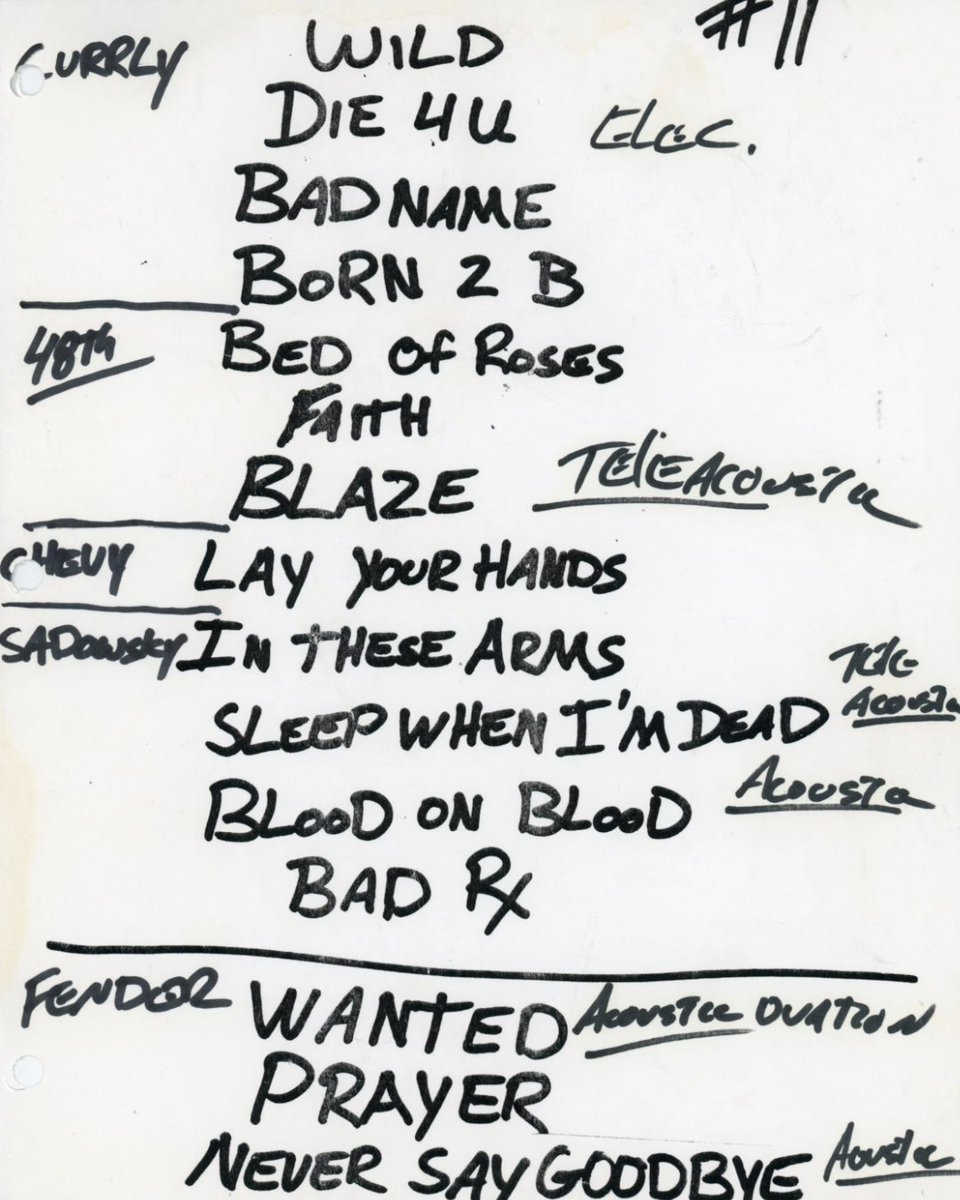 #11
CURRLY WILD
DIE 4 U ELEC.
BAD NAME
BORN 2 B
48TH BED OF ROSES
FAITH
BLAZE TELE ACOUSTIC
CHEVY LAY YOUR HANDS
SADOWSKY IN THESE ARMS
TELE
SLEEP WHEN I'M DEAD ACOUSTIC
BLOOD ON BLOOD ACOUSTIC
BAD Rx
FENDER WANTED ACOUSTIC OVATION
PRAYER
NEVER SAY GOODBYE ACOUSTIC